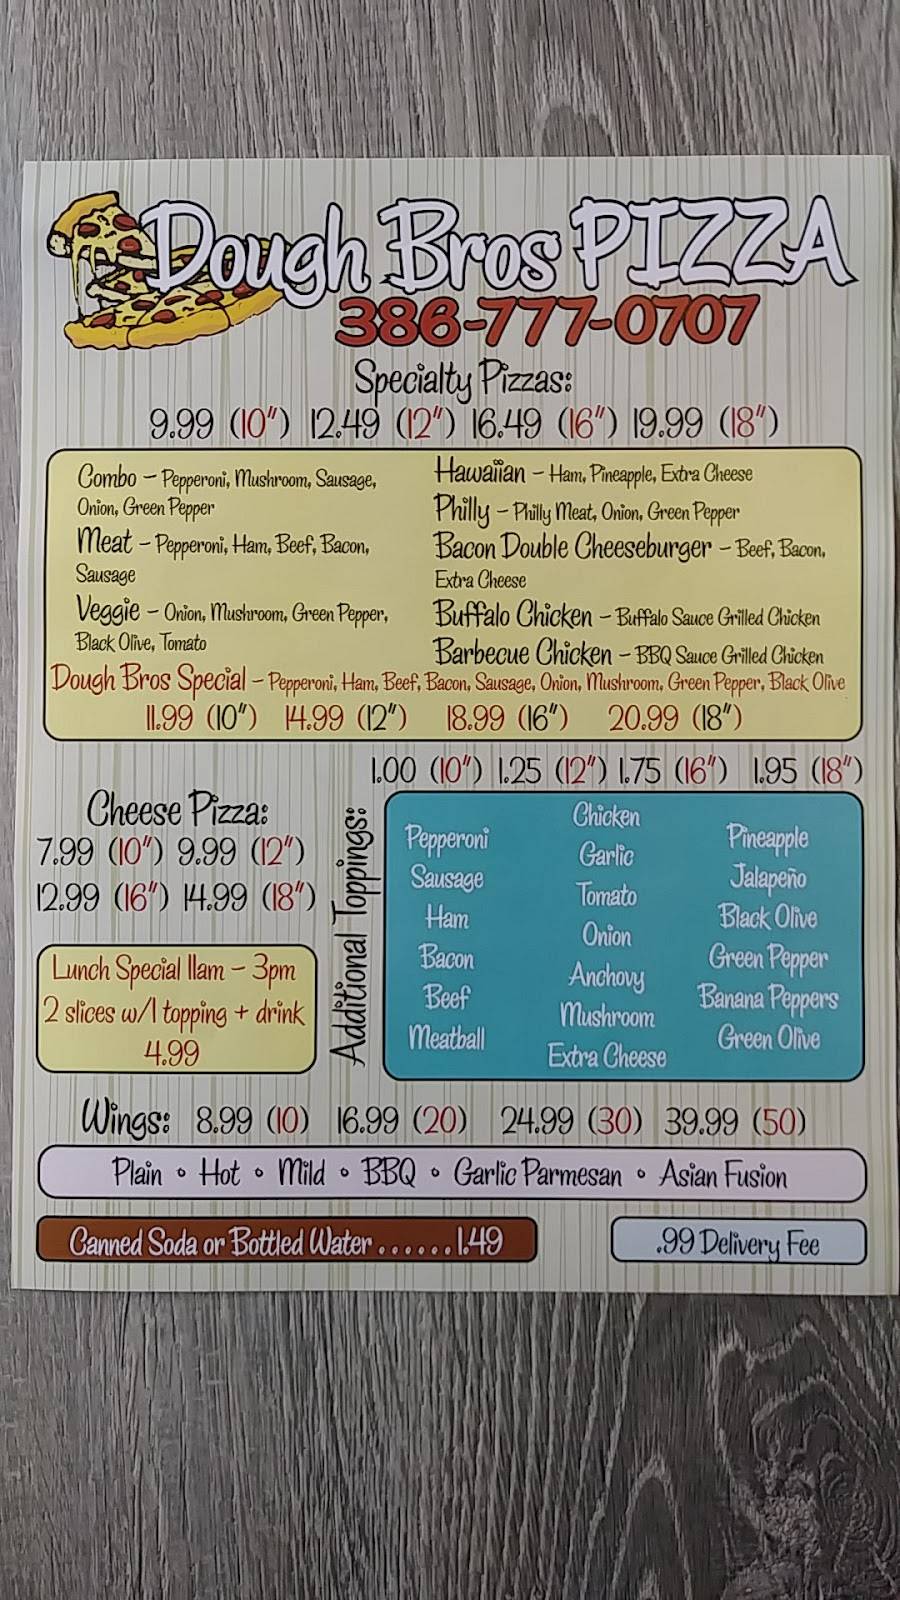 Dough Bros PIZZA
386-777-0707
Specialty Pizzas:
9.99 (10") 12.49 (12") 16.49 (16") 19.99 (18")
Combo - Pepperoni, Mushroom, Sausage,
Onion, Green Pepper
Meat - Pepperoni, Ham, Beef, Bacon,
Sausage
Veggie - Onion, Mushroom, Green Pepper,
Black Olive, Tomato
Hawaiian - Ham, Pineapple, Extra Cheese
Philly - Philly Meat, Onion, Green Pepper
Bacon Double Cheeseburger - Beef, Bacon,
Extra Cheese
Buffalo Chicken - Buffalo Sauce Grilled Chicken
Barbecue Chicken - BBQ Sauce Grilled Chicken
Dough Bros Special - Pepperoni, Ham, Beef, Bacon, Sausage, Onion, Mushroom, Green Pepper, Black Olive
11.99 (10") 14.99 (12") 18.99 (16") 20.99 (18")
Cheese Pizza:
7.99 (10") 9.99 (12")
12.99 (16") 14.99 (18")
Lunch Special 11am - 3pm
2 slices w/1 topping + drink
4.99
Additional Toppings:
1.00 (10") 1.25 (12") 1.75 (16") 1.95 (18")
Pepperoni
Sausage
Ham
Bacon
Beef
Meatball
Chicken
Garlic
Tomato
Onion
Anchovy
Mushroom
Extra Cheese
Pineapple
Jalapeño
Black Olive
Green Pepper
Banana Peppers
Green Olive
Wings: 8.99 (10) 16.99 (20) 24.99 (30) 39.99 (50)
Plain • Hot • Mild • BBQ • Garlic Parmesan • Asian Fusion
Canned Soda or Bottled Water ...... 1.49
.99 Delivery Fee